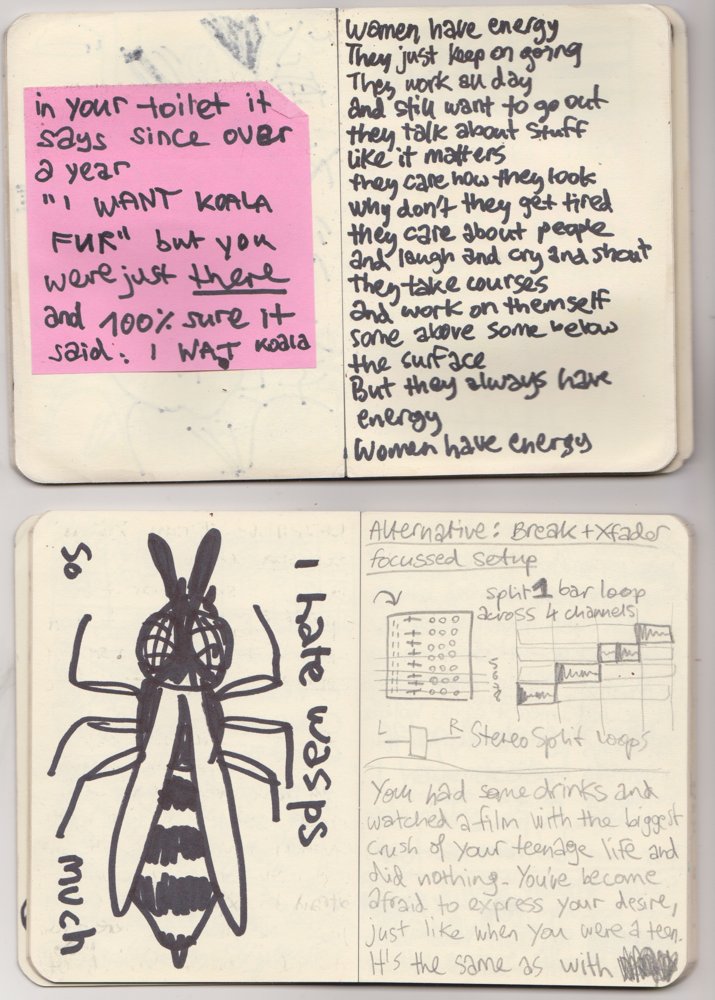 in your toilet it
says since over
a year
"I WANT KOALA
FUR" but you
were just there
and 100% sure it
said: I WAT KOALA
Women have energy
They just keep on going
They work all day
and still want to go out
they talk about stuff
like it matters
they care how they look
why don't they get tired
they care about people
and laugh and cry and shout
they take courses
and work on themself
some above some below
the surface
But they always have
energy
Women have energy
I hate wasps
so
much
Alternative: Break + Xfader
focussed setup
split 1 bar loop
across 4 channels
5
6
7
8
L R Stereo Split Loops
You had some drinks and
watched a film with the biggest
crush of your teenage life and
did nothing. You've become
afraid to express your desire,
just like when you were a teen.
It's the same as with